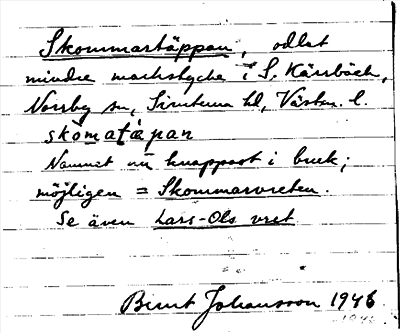 Skommartäppan, odlat
mindre markstycke i S. Kärrbäck,
Norrby sn, Simtuna hd, Västm. l.
skòmatæpan
Namnet nu knappast i bruk;
möjligen = Skommarvreten.
Se även Lars-Ols vret
Bernt Johansson 1946
1946